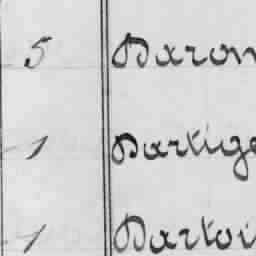 5 Daron
1 Dartige
1 Dartoi